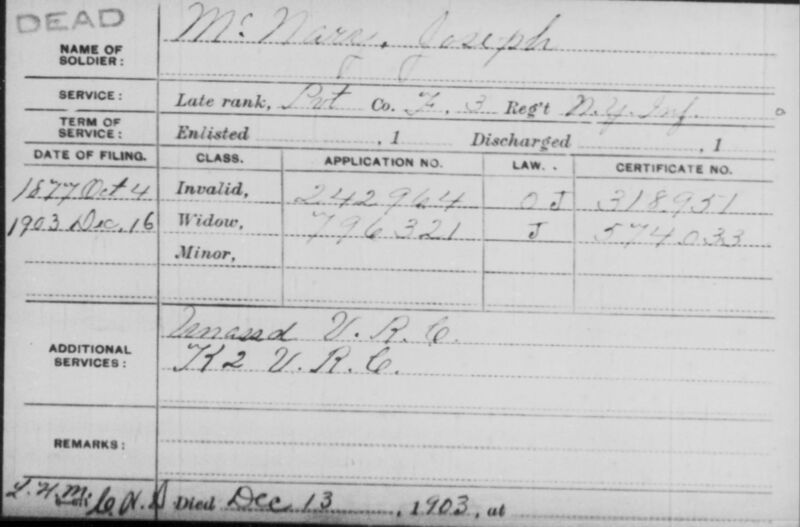 DEAD
NAME OF SOLDIER: McNary, Joseph
SERVICE: Late rank, Pvt Co. F, 3 Reg't N.Y. Inf.
TERM OF SERVICE: Enlisted , 1 Discharged , 1
DATE OF FILING. CLASS. APPLICATION NO. LAW. CERTIFICATE NO.
1877 Oct 4 Invalid, 242964 O J 318951
1903 Dec. 16 Widow, 796321 J 574033
Minor,
ADDITIONAL SERVICES: Unassd V. R. C.
K 2 V. R. C.
REMARKS:
Died Dec 13, 1903, at